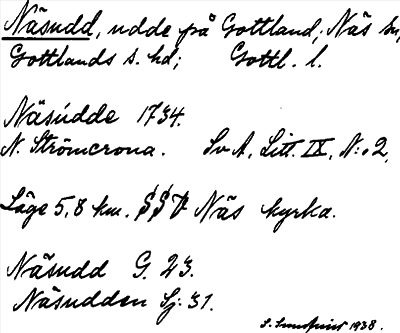 Näsudd, udde på Gottland, Näs sn,
Gottlands s. hd; Gottl. l.
Näsudde 1734.
N. Strömcrona. Sv A, Litt. IX, N:o 2,
Läge 5,8 km. SSV Näs kyrka.
Näsudd G. 23.
Näsudden Sj: 31.
S. 1938.